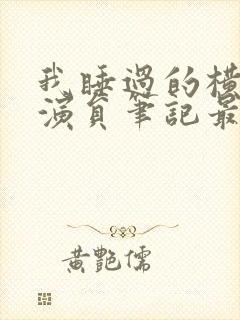 我睡過的橫
演員筆記最
黃艷儒